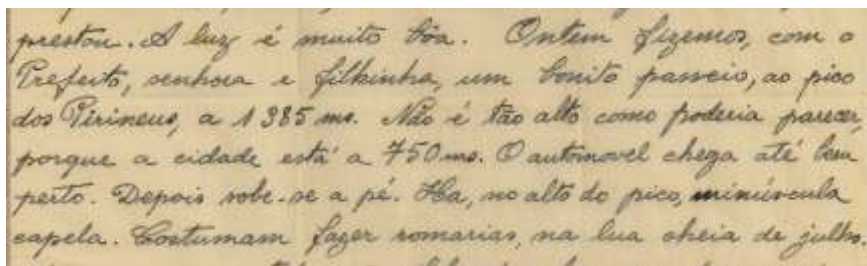 prestou. A luz é muito bôa. Ontem fizemos, com o
Prefeito, senhora e filhinha, um bonito passeio, ao pico
dos Pirineus, a 1385 ms. Não é tão alto como poderia parecer,
porque a cidade está a 750 ms. O automovel chega até bem
perto. Depois sobe-se a pé. Ha, no alto do pico, minúscula
capela. Costumam fazer romarias, na lua cheia de julho.